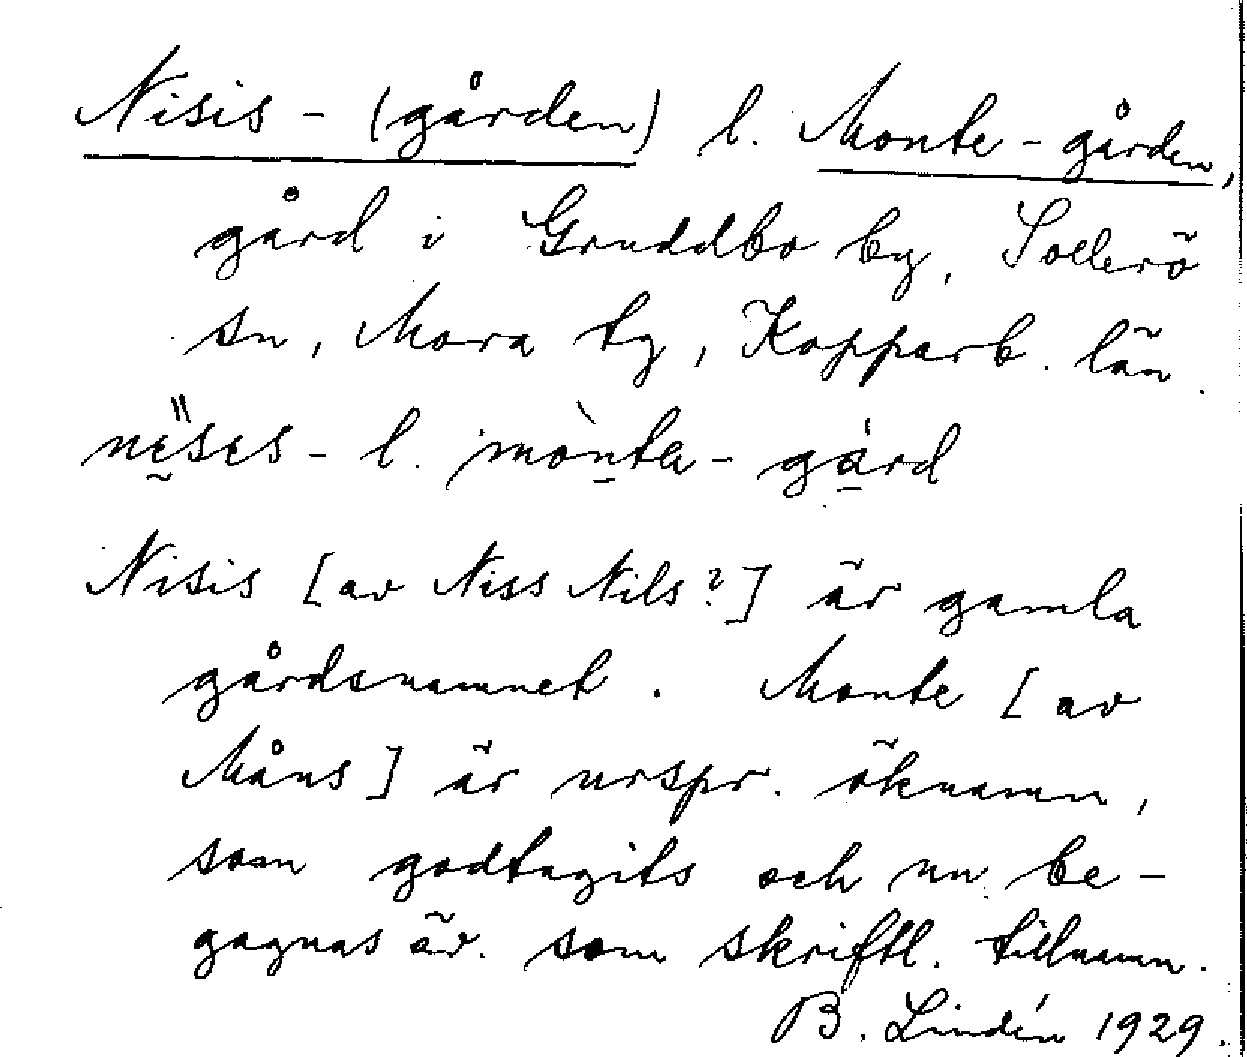 Nisis-(gården) l. Monte-gården,
gård i Gruddbo by, Sollerö
sn, Mora tg, Kopparb. län.
nɛ̰̈sɛs- l. mòn̠ta- gá̠rd
Nisis [av Niss Nils?] är gamla
gårdsnamnet. Monte [av
Måns] är urspr. öknamn,
som godtagits och nu be-
gagnas äv. som skriftl. tillnamn.
B. Lindén 1929.